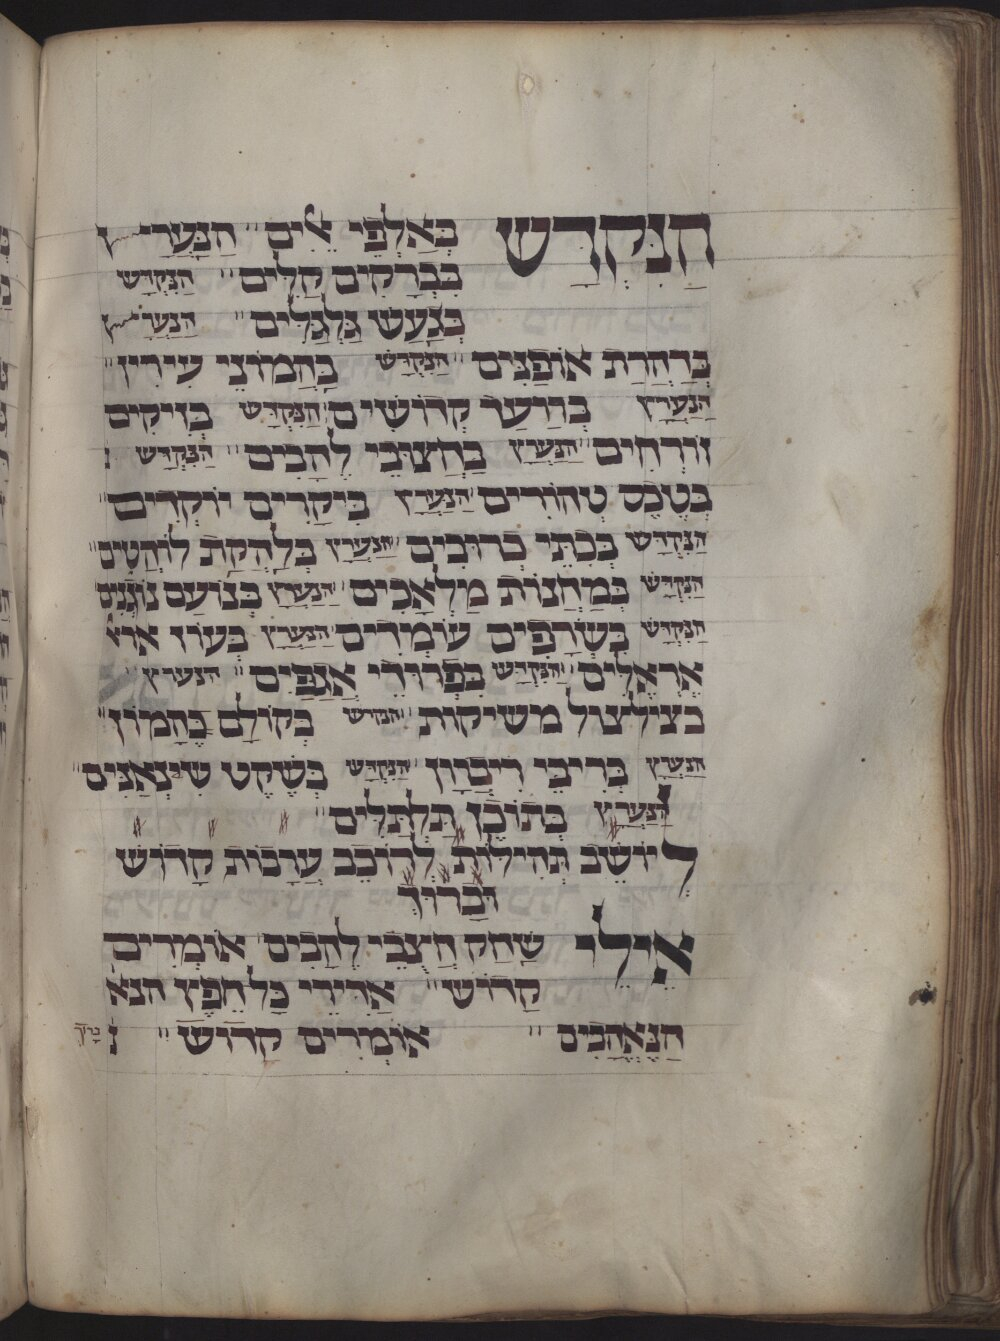 הַנִּקְדָּשׁ בְּאַלְפֵי אֵלִים הַנַּעֲרָץ
בִּבְרָקִים קַלִּים הנקדש
בְּגַעַשׁ גַּלְגַּלִּים הנערץ
בְּדַהֲרַת אוֹפַנִּים הנקדש בַּהֲמוֹנֵי עִירִין
הנערץ בְּוַעַד קְדוֹשִׁים הנקדש בְּזִיקִים
זוֹרְחִים הנערץ בְּחֹצְבֵי לֶהָבִים הנקדש
בְּטֶכֶס טְהוֹרִים הנערץ בִּיקָרִים יוֹקְדִים
הנקדש בְּכִתֵּי כְרוּבִים הנערץ בְּלַהֲקַת לוֹהֲטִים
הנקדש בְּמַחֲנוֹת מַלְאָכִים הנערץ בְּנוֹעַם נוֹגְנִים
הנקדש בִּשְׂרָפִים עוֹמְדִים הנערץ בְּעוֹז אֶרְאֶ
אֶרְאֶלִים הנקדש בִּפְדוּרֵי אֲגַפִּים הנערץ
בְּצִילְצוּל מַשִּׁיקוֹת הנקדש בְּקוֹלָם בְּהָמוֹן
הנערץ בְּרִיבֵּי רִיבְוָן הנקדש בְּשֶׁקֶט שִׁינְאַנִּים
הנערץ בְּתוֹכֶן תַּלְתַּלִּים
לְיוֹשֵׁב תְּהִילּוֹת לְרוֹכֵב עֲרָבוֹת קָדוֹשׁ
וּבָרוּךְ
אֵילֵי שַׁחַק חֲצֻבֵי לֶהָבִים אוֹמְרִים
קָדוֹשׁ אַדִּירֵי כָּל חֵפֶץ הנא
הַנֶּאֱהָבִים אוֹמְרִים קָדוֹשׁ
ברוך